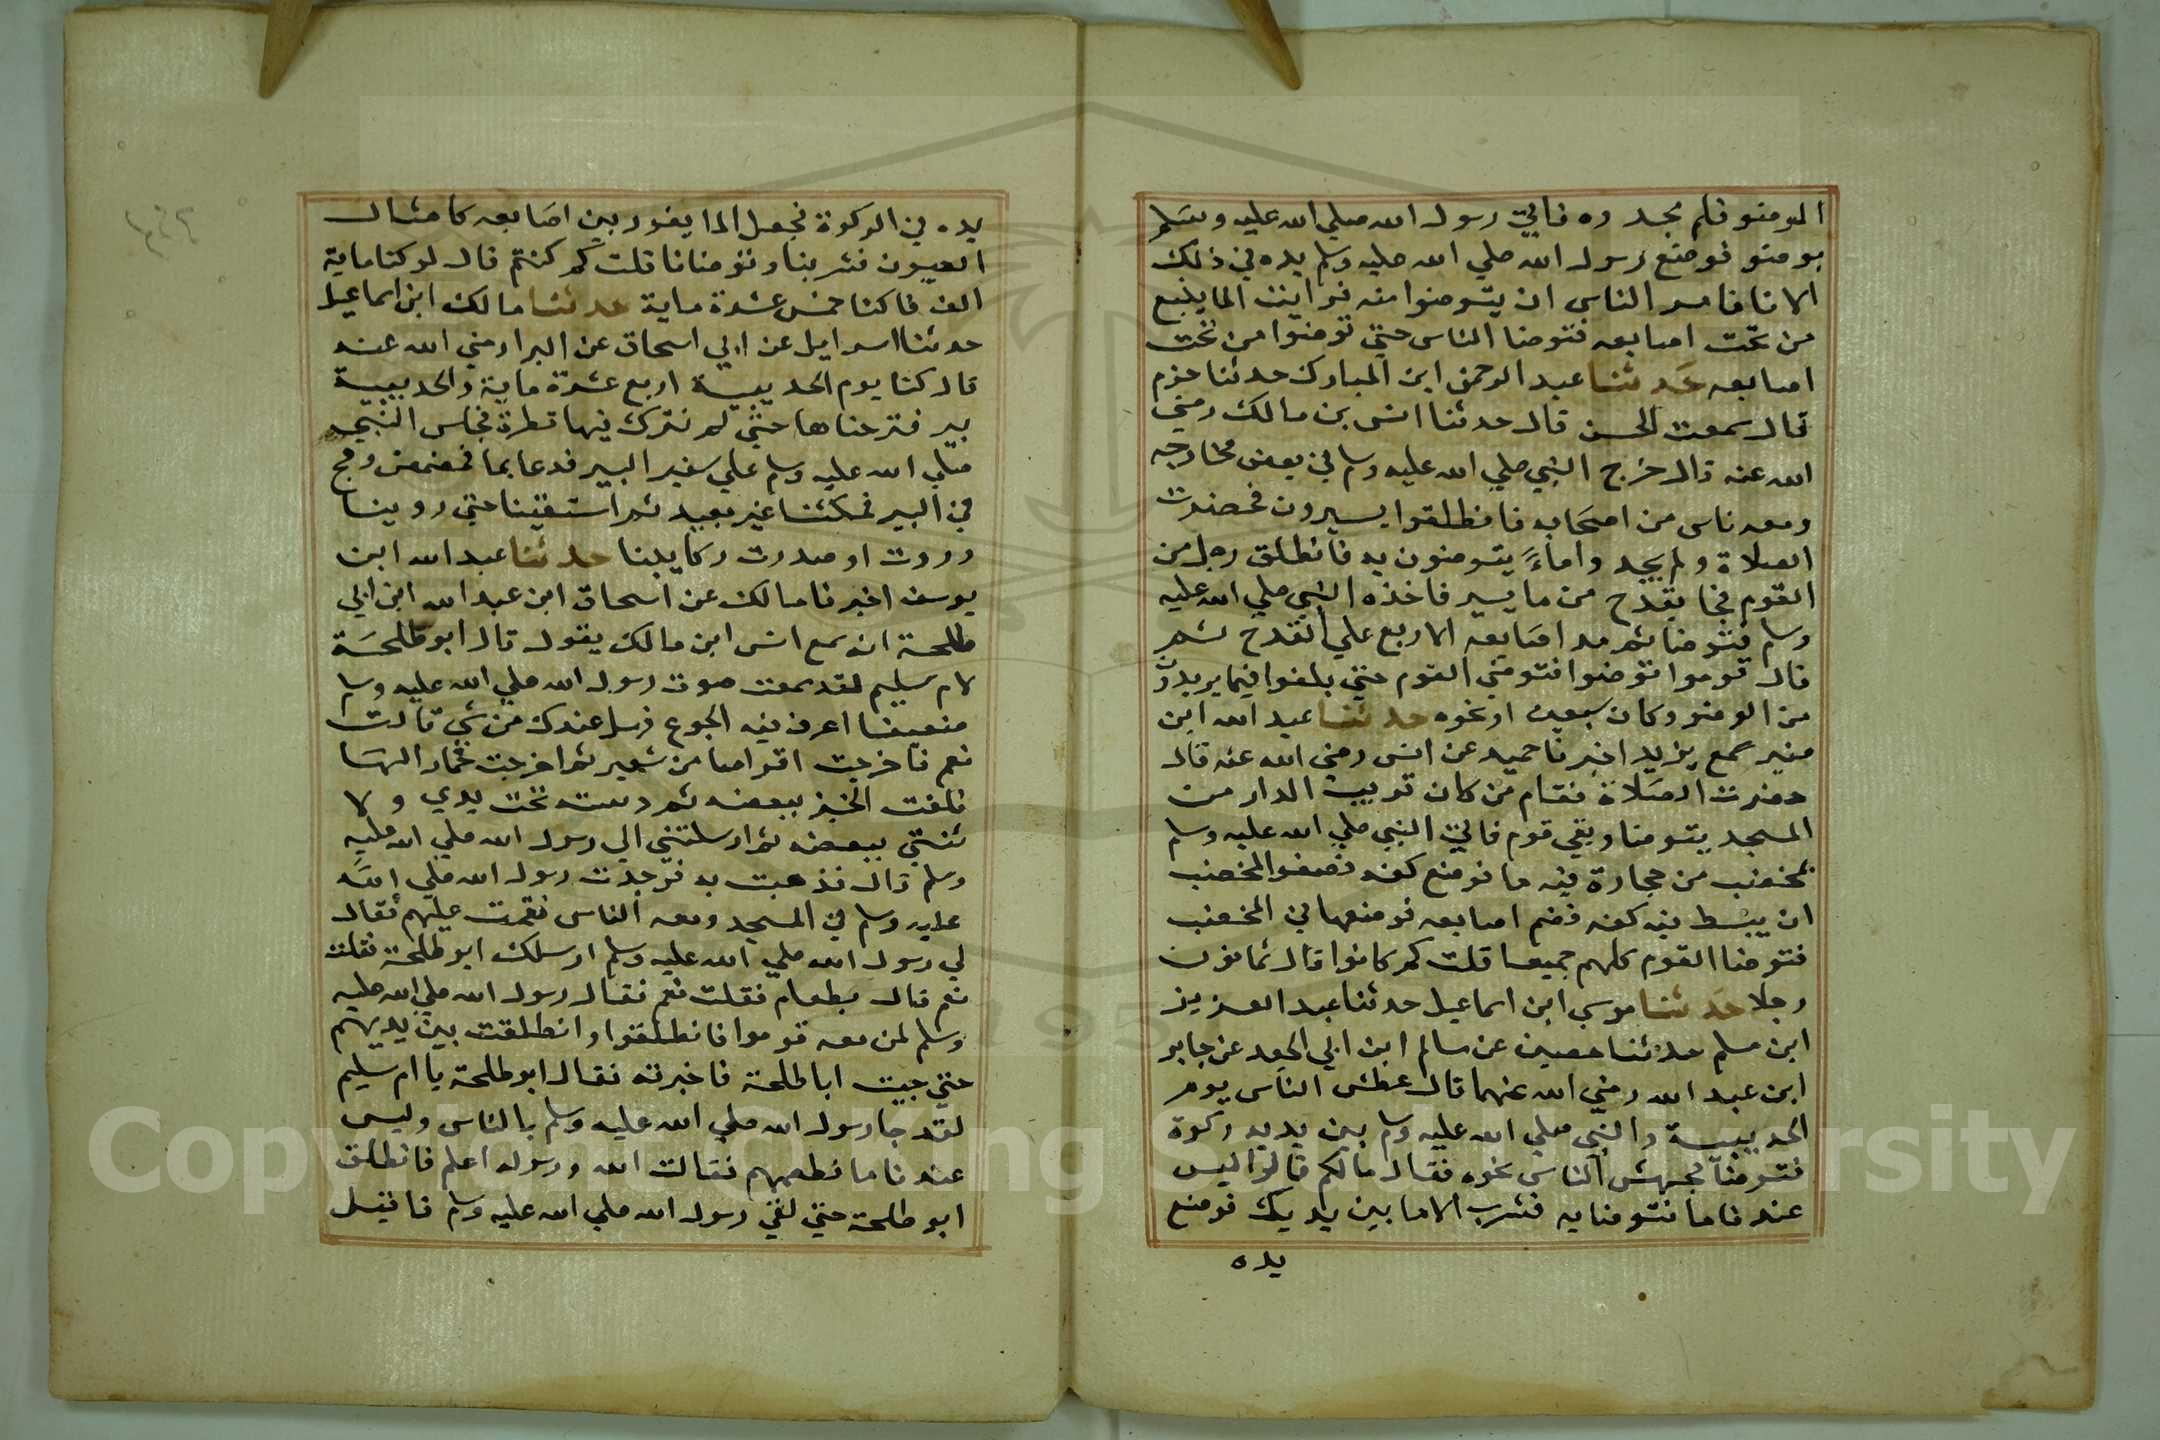 الوضوء فلم يجدوه فاتي رسول الله صلي الله عليه وسلم
بوضوء فوضع رسول الله صلي الله عليه وسلم يده في ذلك
الانا فامر الناس ان يتوضوا منه فرايت الما ينبع
من تحت اصابعه فتوضا الناس حتي توضوا من تحت
اصابعه حدثنا عبد الرحمن ابن المبارك حدثنا حزم
قال سمعت الحسن قال حدثنا انس بن مالك رضي
الله عنه قال خرج النبي صلي الله عليه وسلم في بعض مخارجه
ومعه ناس من اصحابه فانطلقوا يسيرون فحضرت
الصلاة ولم يجدوا ماءً يتوضون به فانطلق رجل من
القوم فجا بقدح من ما يسير فاخذه النبي صلي الله عليه
وسلم فتوضا ثم مد اصابعه الاربع علي القدح ثم
قال قوموا توضوا فتوضي القوم حتي بلغوا فيما يريدون
من الوضوء وكان سبعين او نحوه حدثنا عبد الله ابن
منير سمع يزيد اخبرنا حميد عن انس رضي الله عنه قال
حضرت الصلاة فقام من كان قريب الدار من
المسجد يتوضا وبقي قوم فاتي النبي صلي الله عليه وسلم
بمخضب من حجارة فيه ما فوضع كفه فصغر المخضب
ان يبسط فيه كفه فضم اصابعه فوضعها في المخضب
فتوضا القوم كلهم جميعا قلت كم كانوا قال ثمانون
رجلا حدثنا موسي ابن اسماعيل حدثنا عبد العزيز
ابن مسلم حدثنا حصين عن سالم ابن ابي الجعد عن جابر
ابن عبد الله رضي الله عنهما قال عطش الناس يوم
الحديبية والنبي صلي الله عليه وسلم بين يديه ركوة
فتوضا فجهش الناس نحوه فقال مالكم قالوا ليس
عندنا ما نتوضا به فنشرب الا ما بين يديك فوضع
يده
يده في الركوة فجعل الما يفور بين اصابعه كامثال
العيون فشربنا وتوضانا قلت كم كنتم قال لو كنا ماية
الف كفانا كنا خمس عشرة ماية حدثنا مالك ابن اسماعيل
حدثنا اسرايل عن ابي اسحاق عن البرا رضي الله عنه
قال كنا يوم الحديبية اربع عشرة ماية والحديبية
بير فنزحناها حتي لم نترك فيها قطرة فجلس النبي
صلي الله عليه وسلم علي سفير البير فدعا بما فمضمض ومج
في البير فمكثنا غير بعيد ثم استقينا حتي روينا
وروت او صدرت ركايبنا حدثنا عبد الله ابن
يوسف اخبرنا مالك عن اسحاق ابن عبد الله ابن ابي
طلحة انه سمع انس ابن مالك يقول قال ابو طلحة
لام سليم لقد سمعت صوت رسول الله صلي الله عليه وسلم
ضعيفا اعرف فيه الجوع فهل عندك من شي قالت
نعم فاخرجت اقراصا من شعير ثم اخرجت خمارا لها
فلفت الخبز ببعضه ثم دسته تحت يدي ولا
ثتني ببعضه ثم ارسلتني الي رسول الله صلي الله عليه
وسلم قال فذهبت به فوجدت رسول الله صلي الله
عليه وسلم في المسجد ومعه الناس فقمت عليهم فقال
لي رسول الله صلي الله عليه وسلم ارسلك ابو طلحة فقلت
نعم قال بطعام فقلت نعم فقال رسول الله صلي الله عليه
وسلم لمن معه قوموا فانطلقوا وانطلقت بين يديهم
حتي جيت ابا طلحة فاخبرته فقال ابو طلحة يا ام سليم
لقد جا رسول الله صلي الله عليه وسلم بالناس وليس
عندنا ما نطعمهم فقالت الله ورسوله اعلم فانطلق
ابو طلحة حتي لقي رسول الله صلي الله عليه وسلم فاقبل
Copyright © King Saud University
195